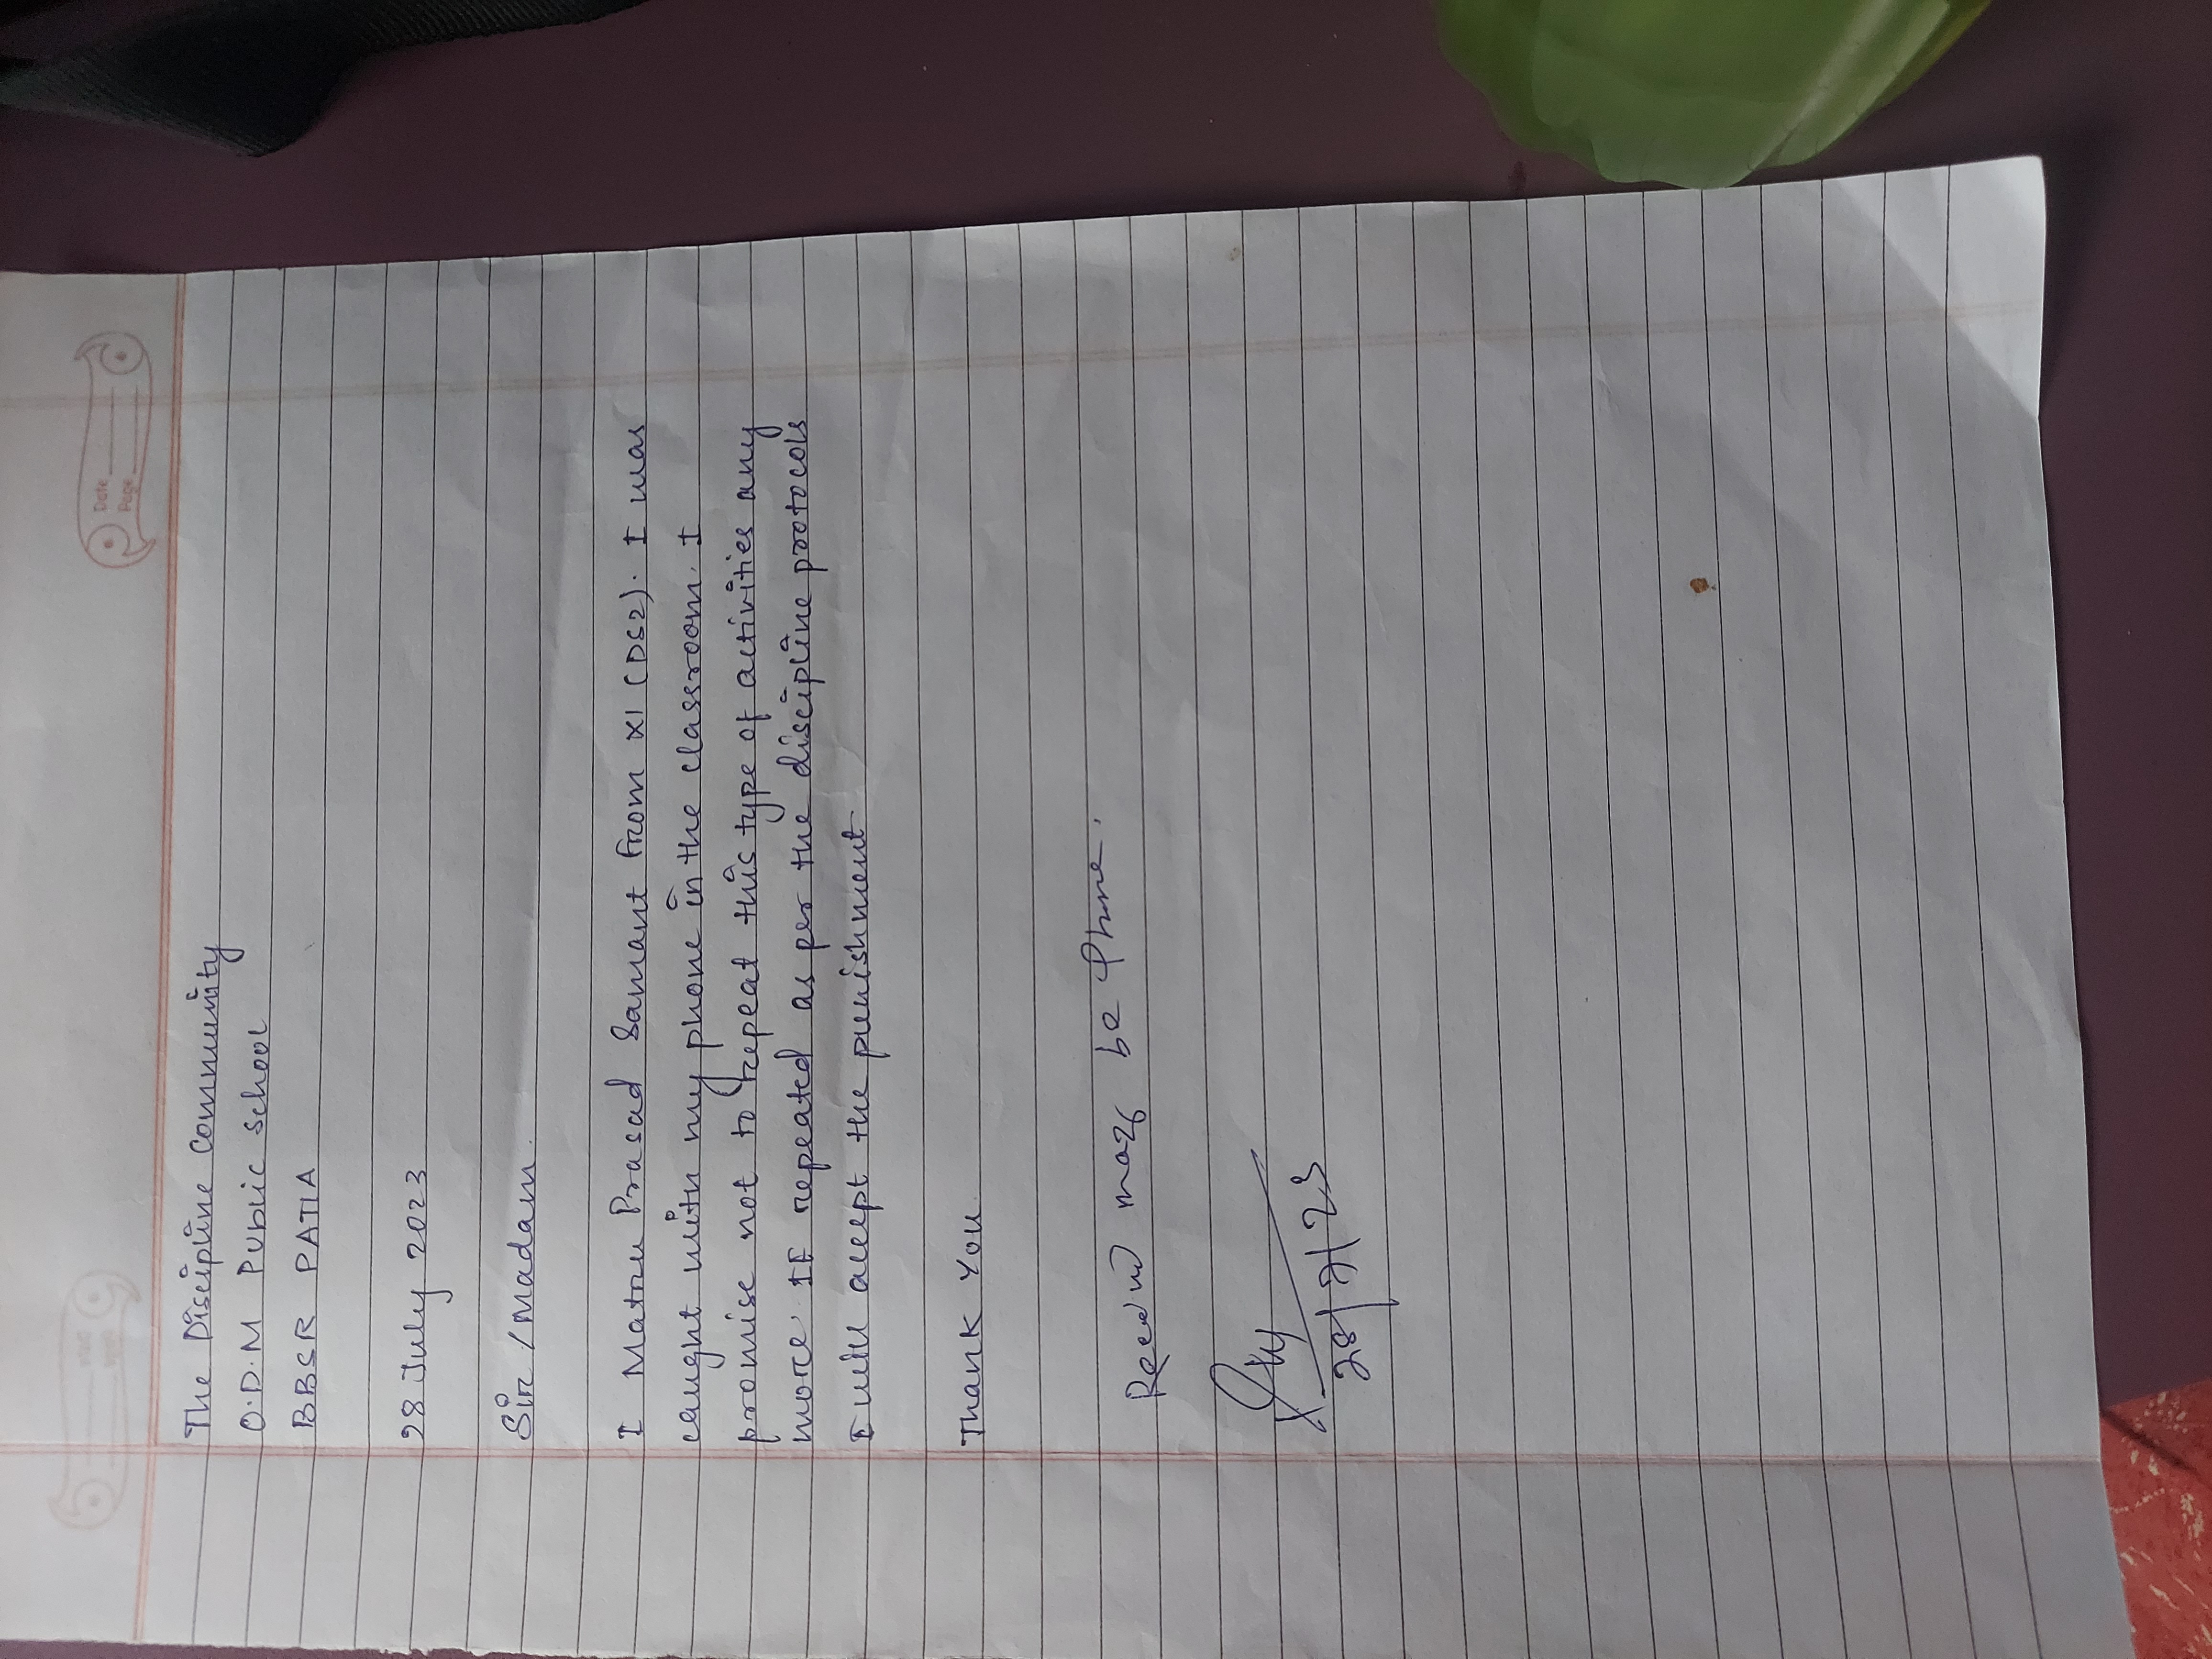 Date
Page
The Discipline Community
O.D.M Public School
BBSR PATIA
28 July 2023
Sir/Madam.
I Matru Prasad Samant from XI (DS2). I was
caught with my phone in the classroom. I
promise not to repeat this type of activities any
more. If repeated as per the discipline protocols
I will accept the punishment
Thank You
may be Phone.
28/7/23